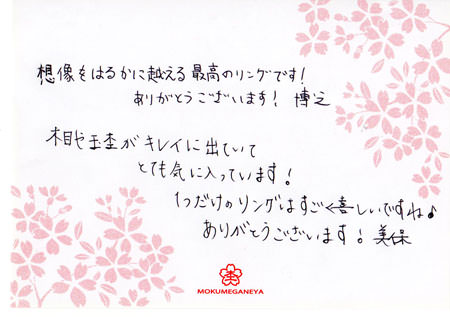 想像をはるかに越える最高のリングです!
ありがとうございます! 博之
木目や玉杢がキレイに出ていて
とても気に入っています!
1つだけのリングはすごく喜しいですね♪
ありがとうございます! 美保
MOKUMEGANEYA